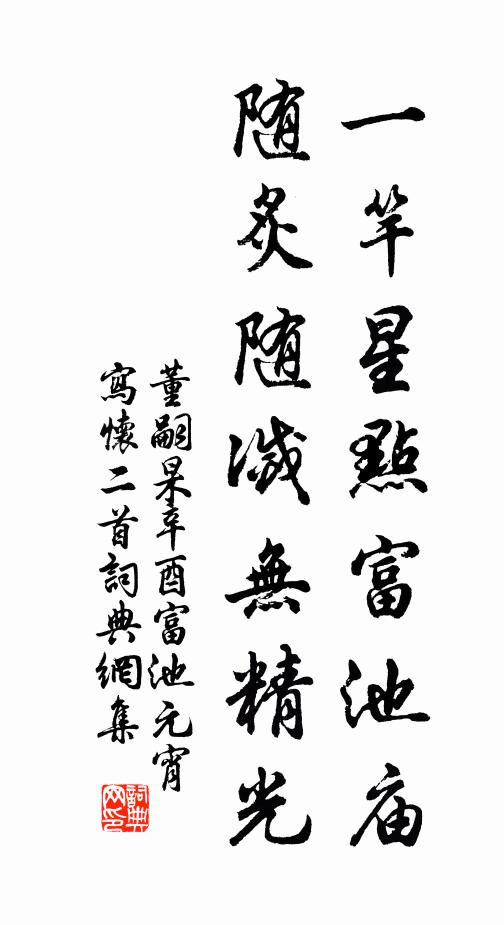 一竿星點富池庙
随炙随滅無精光
董嗣杲辛酉富池元宵
寫懷二首詞典網集
詞典网印